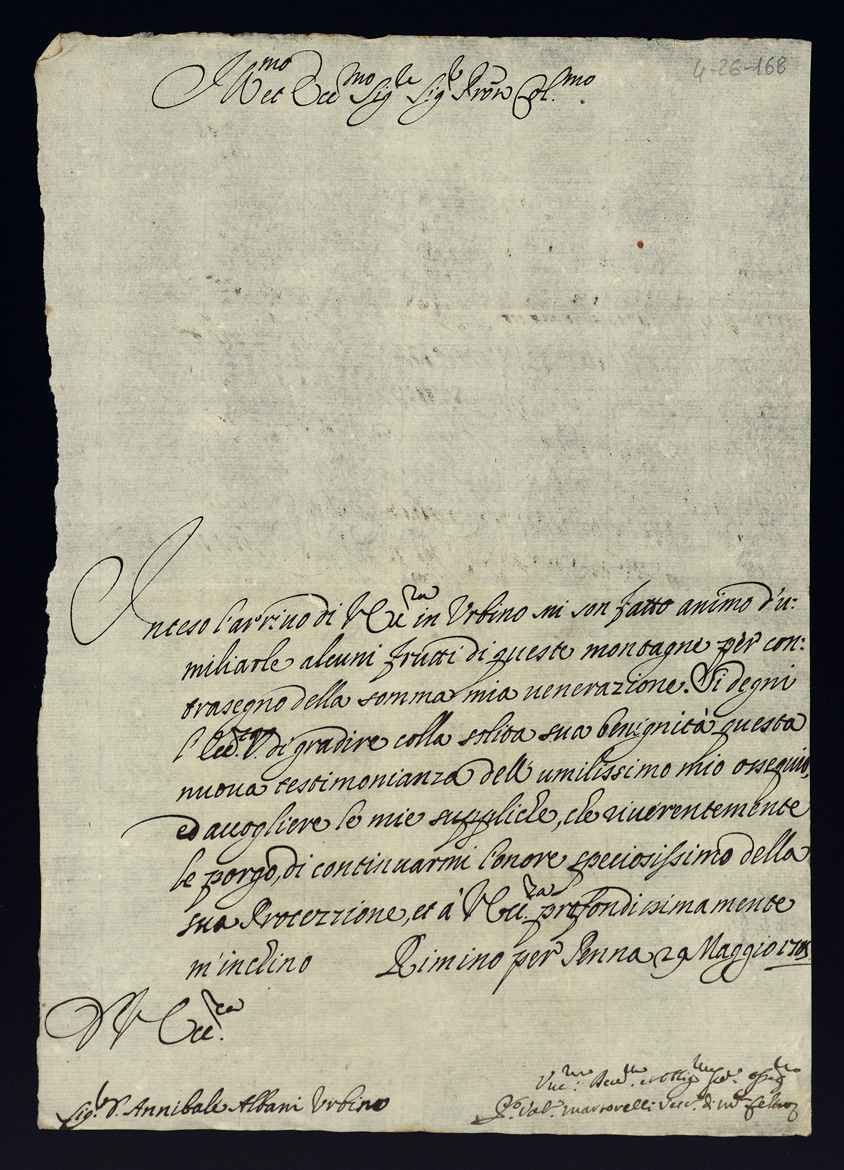 4-26-168
Ill.mo et Ecc.mo Sig.re Sig.r Pron Col.mo
Inteso l'arriuo di V Ecc.za in Vrbino mi son fatto animo d'u:
miliarle alcuni frutti di queste montagne per con:
trasegno della somma mia uenerazione. Si degni
l'Ecc.za V. di gradire colla solita sua benignità questa
nuoua testimonianza dell'umilissimo mio ossequio,
ed accogliere le mie suppliche, che riuerentemente
le porgo, di continuarmi l'onore speciosissimo della
sua Protezzione, et à V Ecc.za profondissimamente
m'inchino Rimino per Penna 29 Maggio
D V Ecc.za
Sig.r D. Annibale Albani Vrbino
Martorelli Vesc.o di M.te Feltro